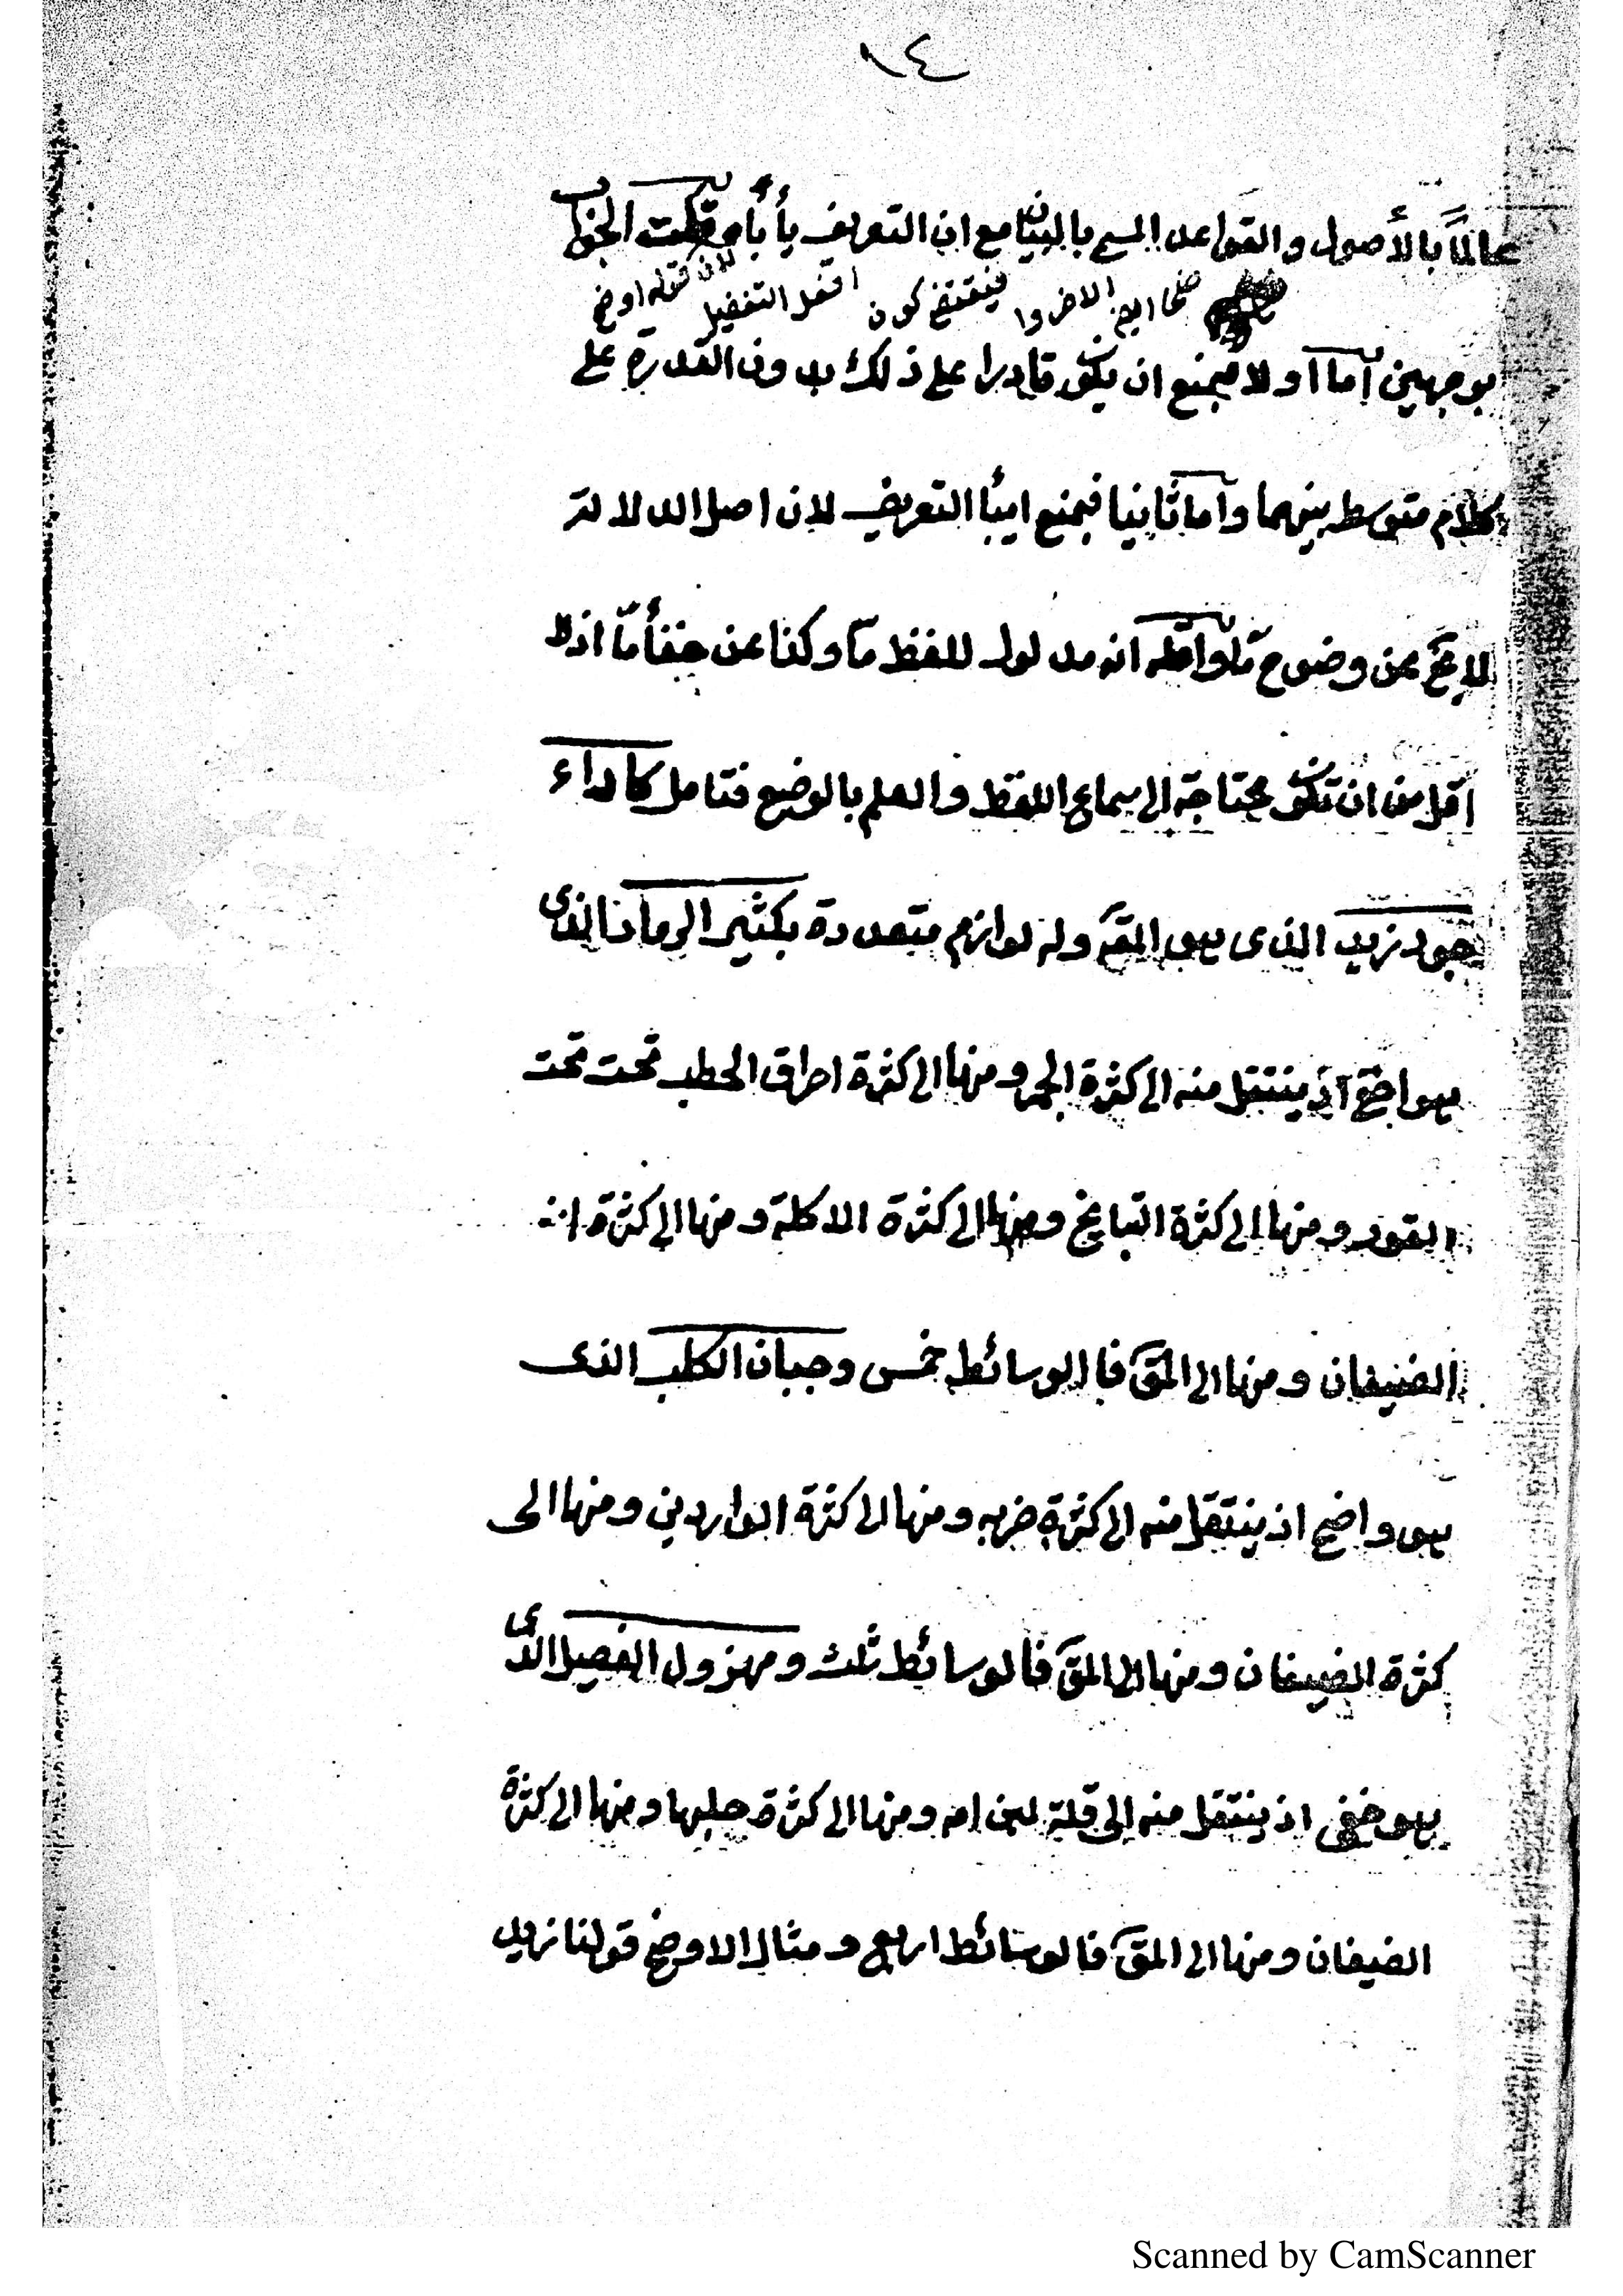 ١٤
عالماً بالأصول والقواعد المسمى بالبيان مع ان التعريف يأباه قلت الجواب
لان قوله اوضح
افعل التفضيل فيقتضى كون
بوجهين اما اولا فبمنع ان يكون قادرا على ذلك بدون القدرة على
كلام متوسط بينهما واما ثانيا فبمنع اباء التعريف لان اصل الدلالة
لا يخ عن وضوح ما واقله انه مدلول للفظ ما وكذا عن خفاء ما اذلا
اقل من ان تكون محتاجة الى سماع اللفظ والعلم بالوضع فتامل كاداء
جود زيد الذى هو المقص وله لوازم متعددة بكثير الرماد الذى
هو اوضح اذ ينتقل منه الى كثرة الجمر ومنها الى كثرة احراق الحطب تحت تحت
القدور ومنها الى كثرة الطبايخ ومنها الى كثرة الاكلة ومنها الى كثرة
الضيفان ومنها الى المقص فا الوسائط خمس وجبان الكلب الذى
هو واضح اذ ينتقل منه الى كثرة ضربه ومنها الى كثرة الواردين ومنها الى
كثرة الضيفان ومنها الى المقص فالوسائط ثلث ومهزول الفصيل الذى
هو خفى اذ ينتقل منه الى قلة لبن امه ومنها الى كثرة حلبها ومنها الى كثرة
الضيفان ومنها الى المقص فالوسائط اربع ومثال الاوضح قولنا زيد
Scanned by CamScanner